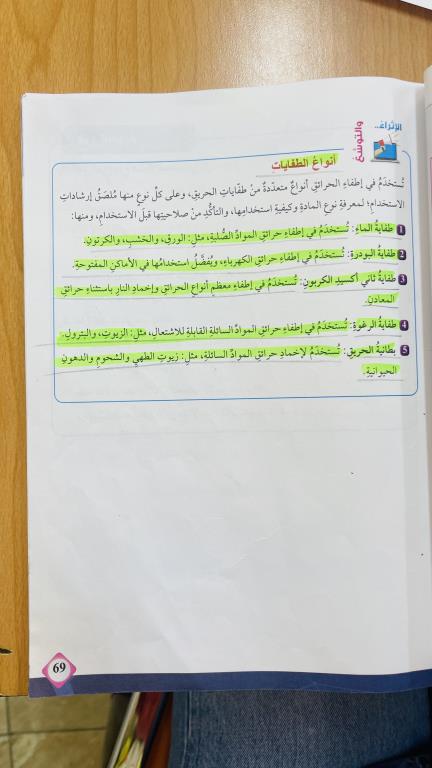 الإثراءُ..
والتوسُّعُ
أنواعُ الطفاياتِ
تُستخدَمُ في إطفاءِ الحرائقِ أنواعٌ متعدّدةٌ منْ طفّاياتِ الحريقِ، وعلى كلِّ نوعٍ منها مُلصَقُ إرشاداتِ
الاستخدامِ؛ لمعرفةِ نوعِ المادةِ وكيفيّةِ استخدامِها، والتأكُّدِ منْ صلاحيتِها قبلَ الاستخدامِ، ومنها:
1 طفايةُ الماءِ: تُستخدَمُ في إطفاءِ حرائقِ الموادِّ الصُّلبةِ، مثلِ: الورقِ، والخشبِ، والكرتونِ.
2 طفايةُ البودرةِ: تُستخدَمُ في إطفاءِ حرائقِ الكهرباءِ، ويُفضَّلُ استخدامُها في الأماكنِ المفتوحةِ.
3 طفايةُ ثاني أكسيدِ الكربونِ: تُستخدَمُ في إطفاءِ معظمِ أنواعِ الحرائقِ وإخمادِ النارِ باستثناءِ حرائقِ
المعادنِ.
4 طفايةُ الرغوةِ: تُستخدَمُ في إطفاءِ حرائقِ الموادِّ السائلةِ القابلةِ للاشتعالِ، مثلِ: الزيوتِ، والبترولِ.
5 بطانيةُ الحريقِ: تُستخدَمُ لإخمادِ حرائقِ الموادِّ السائلةِ، مثلِ: زيوتِ الطهيِ والشحومِ والدهونِ
الحيوانيةِ.
69